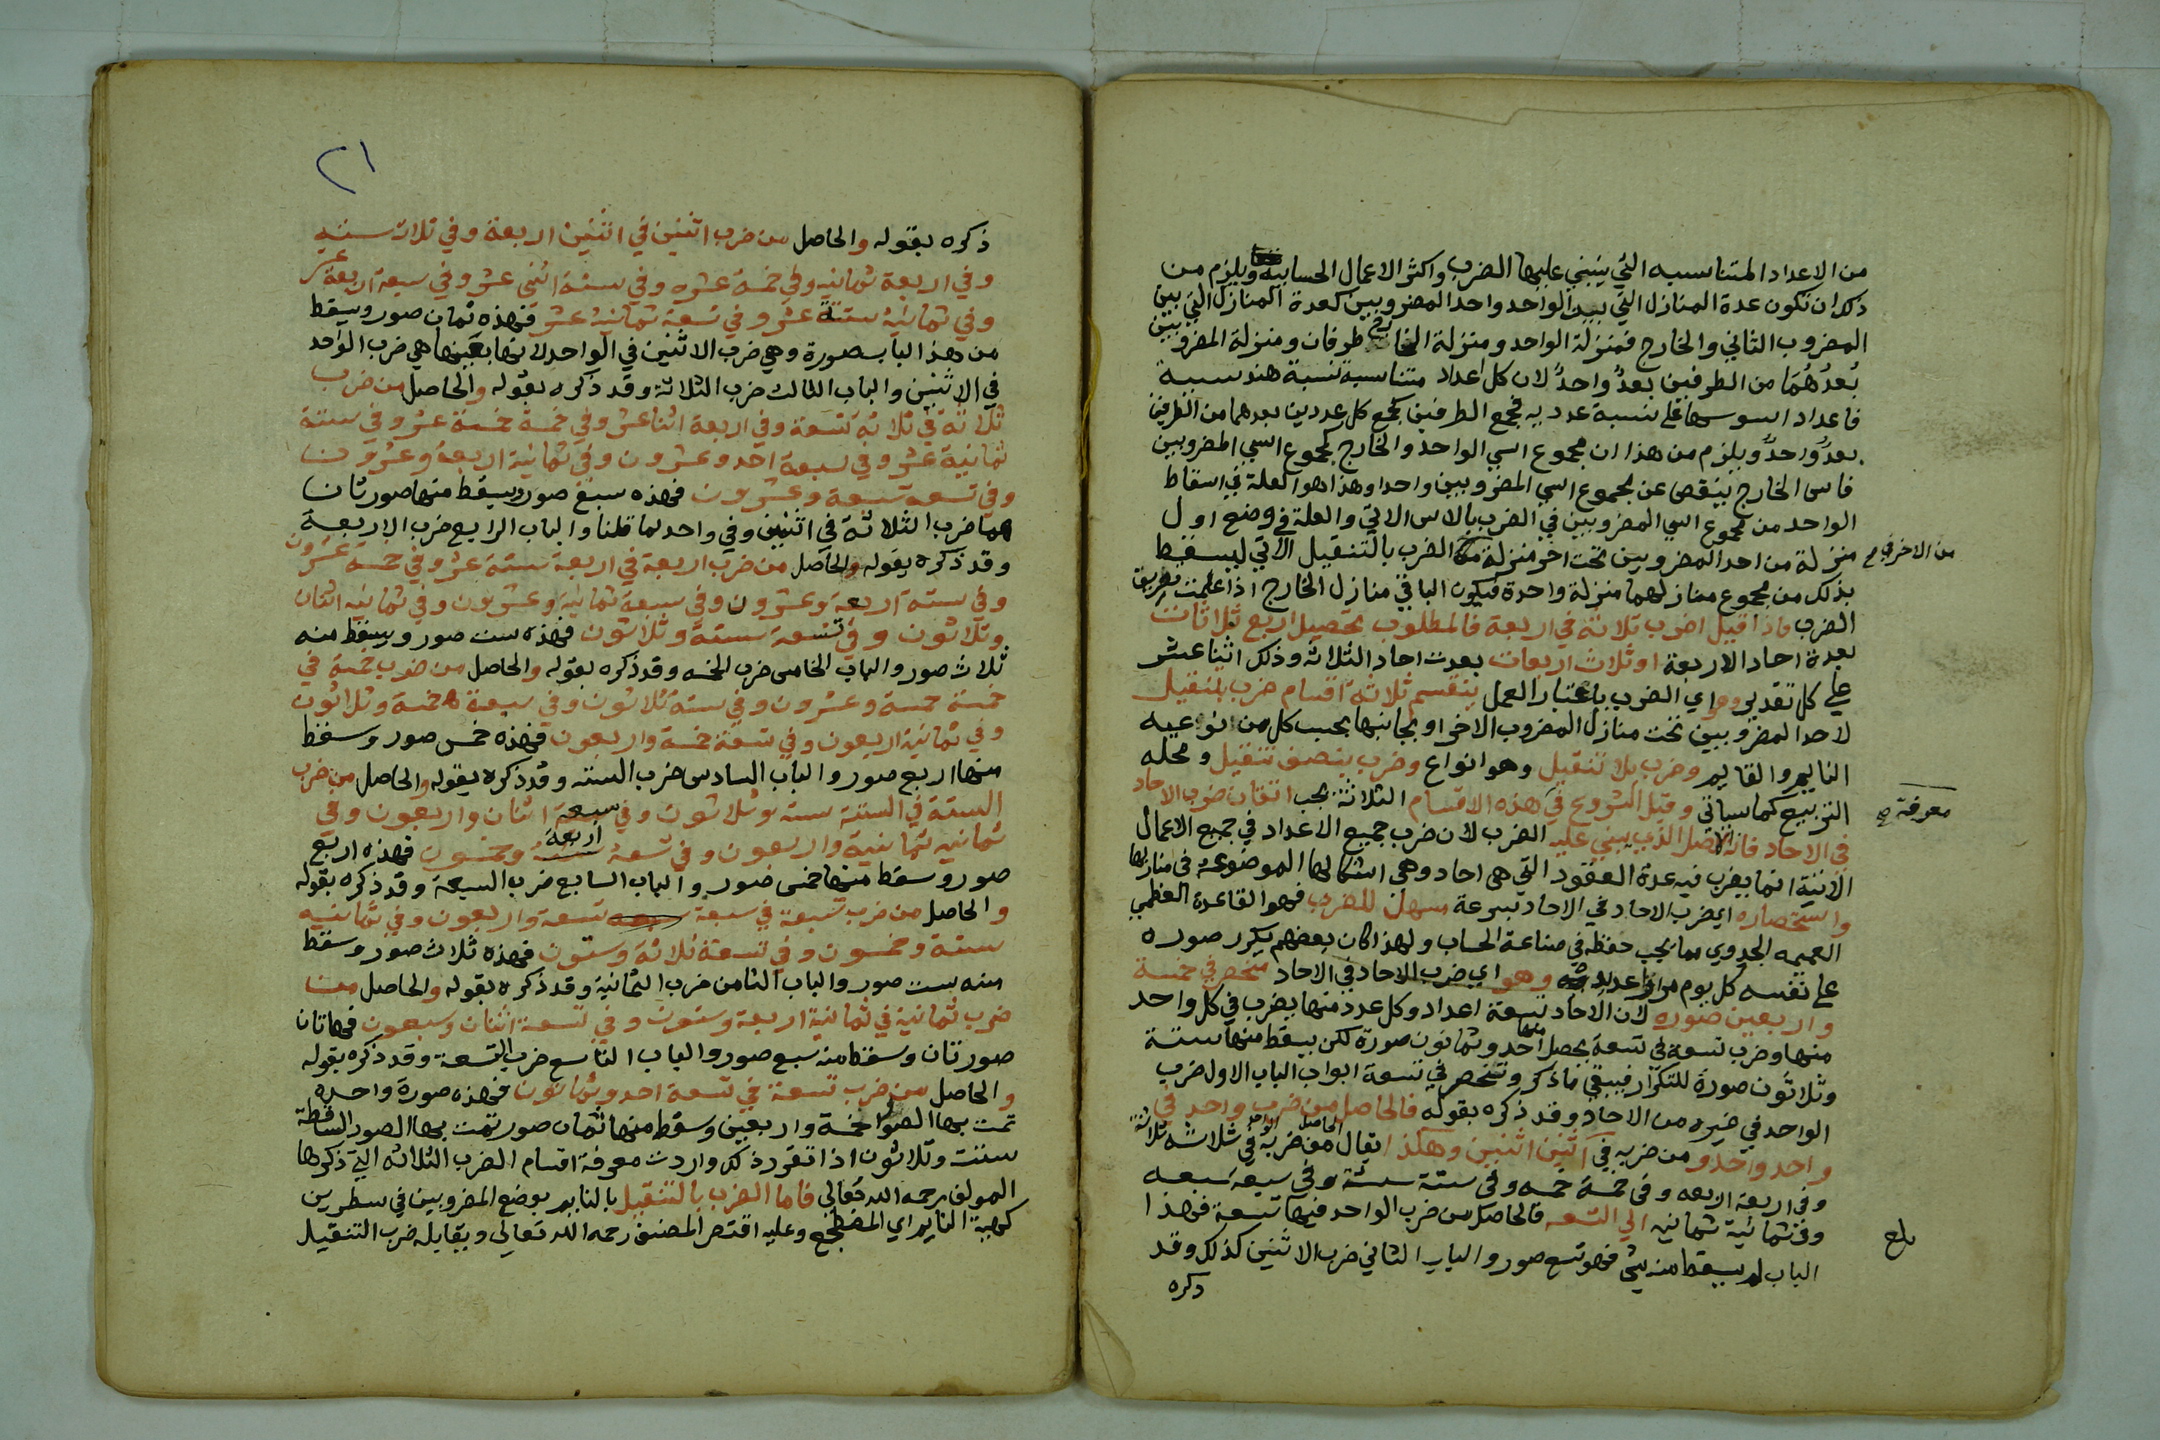 من الاعداد المتناسبه التي ينبني عليها الضرب واكثر الاعمال الحسابية ويلزم من
ذلك ان تكون عدة المنازل التي بين الواحد واحد المضروبين كعدة المنازل التي بين
المضروب الثاني والخارج فمنزلة الواحد ومنزلة الخارج طرفان ومنزلة المضروبين
بُعدُهُمَا من الطرفين بعدٌ واحدٌ لان كل اعداد متناسبة نسبة هندسية
فاعداد اسوسها علي نسبة عدديه فجمع الطرفين كجمع كل عددين بعدهما من الطرفين
بعدٌ واحدٌ ويلزم من هذا ان مجموع اسي الواحد والخارج كمجموع اسي المضروبين
فاس الخارج ينقص عن مجموع اسي المضروبين واحدا وهذا هو العلة في اسقاط
الواحد من مجموع اسي المضروبين في الضرب بالاس الاتي والعلة في وضع اول
منزلة من احد المضروبين تحت اخر منزلة من الضرب بالتنقيل الاتي ليسقط
من الاخر في
بذلك من مجموع منازلهما منزلة واحدة فيكون الباقي منازل الخارج اذا علمت تعريف
الضرب فاذا قيل اضرب ثلاثة في اربعة فالمطلوب تحصيل اربع ثلاثات
بعدة احاد الاربعة او ثلاث اربعات بعدت احاد الثلاثه وذلك اثنا عشر
علي كل تقدير وهو اي الضرب باعتبار العمل ينقسم ثلاثة اقسام ضرب بالتنقيل
لاحد المضروبين تحت منازل المضروب الاخر او بجانبها بحسب كل من نوعيه
النايم والقايم وضرب بلا تنقيل وهو انواع وضرب بنصف تنقيل ومحله
التربيع كما سياتي وقبل الشروع في هذه الاقسام الثلاثة يجب اتقان ضرب الاحاد
معرفة
في الاحاد فانه الاصل الذي يبني عليه الضرب لان ضرب جميع الاعداد في جميع الاعمال
الاتية انما يضرب فيه عدة العقود التي هي احاد وهي اشكالها الموضوعة في منازلها
واستحضاره اي ضرب الاحاد في الاحاد بسرعة سهل للضرب فهو القاعدة العظمي
العميمه الجدوي مما يجب حفظه في صناعة الحساب ولهذا كان بعضهم يكرر صوره
علي نفسه كل يوم مرارا عديده وهو اي ضرب الاحاد في الاحاد منحصر في خمسة
واربعين صوره لان الاحاد تسعة اعداد وكل عدد منها يضرب في كل واحد
منها وضرب تسعة في تسعة يحصل منها احد وثمانون صورة لكن يسقط منها ستة
وثلاثون صورة للتكرار فيبقي ما ذكر وتنحصر في تسعة ابواب الباب الاول ضرب
الواحد في غيره من الاحاد وقد ذكره بقوله فالحاصل من ضرب واحد في
واحد واحد ومن ضربه في اثنين اثنين وهكذا يقال الحاصل من ضربه في ثلاثة ثلاثة
وفي اربعة اربعه وفي خمسة خمسه وفي ستة ستة وفي سبعة سبعه
وفي ثمانية ثمانيه الي التسعه فالحاصل من ضرب الواحد فيها تسعة فهذا
الباب لم يسقط منه شي فهو تسع صور والباب الثاني ضرب الاثنين كذلك وقد
بلغ
ذكره
٢١
ذكره بقوله والحاصل من ضرب اثنين في اثنين اربعة وفي ثلاث ستة
وفي اربعة ثمانيه وفي خمسة عشره وفي ستة اثني عشر وفي سبعة اربعة عشر
وفي ثمانية ستة عشر وفي تسعة ثمانية عشر فهذه ثمان صور ويسقط
من هذا الباب صورة وهي ضرب الاثنين في الواحد لانها بعينها هي ضرب الواحد
في الاثنين والباب الثالث ضرب الثلاثة وقد ذكره بقوله والحاصل من ضرب
ثلاثة في ثلاثه تسعة وفي اربعة اثنا عشر وفي خمسة خمسة عشر وفي ستة
ثمانية عشر وفي سبعة احد وعشرون وفي ثمانية اربعة وعشرون
وفي تسعه سبعة وعشرون فهذه سبع صور ويسقط منها صورتان
هما ضرب الثلاثة في اثنين وفي واحد لما قلنا والباب الرابع ضرب الاربعة
وقد ذكره بقوله والحاصل من ضرب اربعة في اربعة ستة عشر وفي خمسة عشرون
وفي ستة اربعة وعشرون وفي سبعة ثمانية وعشرون وفي ثمانيه اثنان
وثلاثون وفي تسعة ستة وثلاثون فهذه ست صور ويسقط منه
ثلاث صور والباب الخامس ضرب الخمسه وقد ذكره بقوله والحاصل من ضرب خمسة في
خمسة خمسة وعشرون وفي ستة ثلاثون وفي سبعة خمسة وثلاثون
وفي ثمانية اربعون وفي تسعة خمسة واربعون فهذه خمس صور وسقط
منها اربع صور والباب السادس ضرب الستة وقد ذكره بقوله والحاصل من ضرب
الستة في الستة ستة وثلاثون وفي سبعة اثنان واربعون وفي
ثمانيه ثمانية واربعون وفي تسعة اربعة وخمسون فهذه اربع
صور وسقط منها خمس صور والباب السابع ضرب السبعة وقد ذكره بقوله
والحاصل من ضرب سبعة في سبعة تسعة واربعون وفي ثمانيه
ستة وخمسون وفي تسعة ثلاثة وستون فهذه ثلاث صور وسقط
منه ست صور والباب الثامن ضرب الثمانية وقد ذكره بقوله والحاصل من
ضرب ثمانية في ثمانية اربعة وستون وفي تسعة اثنان وسبعون فهاتان
صورتان وسقط منه سبع صور والباب التاسع ضرب التسعة وقد ذكره بقوله
والحاصل من ضرب تسعة في تسعة احد وثمانون فهذه صورة واحده
تمت بها الصور الخمسة واربعين وسقط منها ثمان صور تمت بها الصور الساقطة
ستت وثلاثون اذا تقرر ذلك واردت معرفة اقسام الضرب الثلاثه التي ذكرها
المولف رحمه الله تعالي فاما الضرب بالتنقيل بالنايم بوضع المضروبين في سطرين
كهيية النايم اي المضطجع وعليه اقتصر المصنف رحمه الله تعالي ويقابله ضرب التنقيل